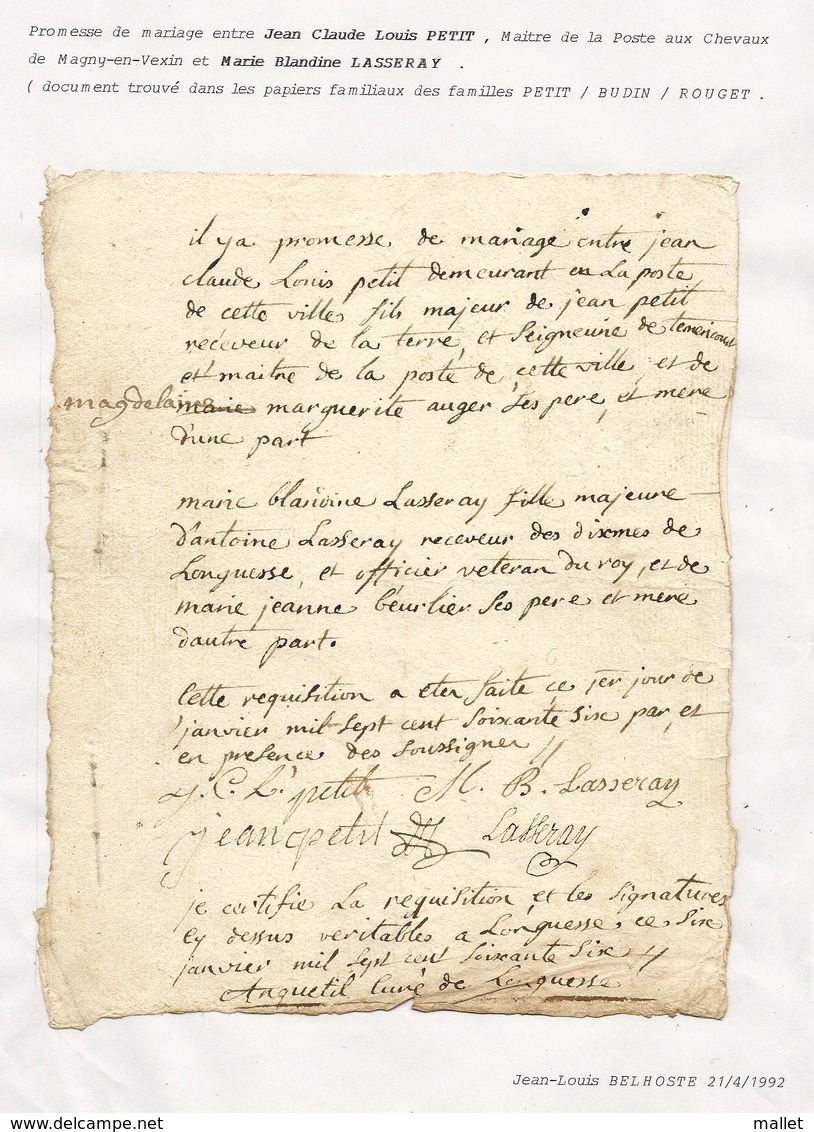 Promesse de mariage entre Jean Claude Louis PETIT , Maitre de la Poste aux Chevaux
de Magny-en-Vexin et Marie Blandine LASSERAY .
( document trouvé dans les papiers familiaux des familles PETIT / BUDIN / ROUGET .
il ya promesse de mariage entre jean
claude Louis petit demeurant en La poste
de cette ville fils majeur de jean petit
receveur de la terre et Seigneurie de temericourt
et maitre de la poste de cette ville, et de
magdelaine marie marguerite auger Ses pere, et mere
d'une part
marie blandine Lasseray fille majeure
d'antoine Lasseray receveur des dixmes de
Longuesse, et officier veteran du roy, et de
marie jeanne beurlier Ses pere et mere
dautre part.
Cette requisition a eter faite ce 1er jour de
janvier mil sept cent Soixante Six par, et
en presence des Soussigner //
J. C. L. petit M. B. Lasseray
jean petit Lasseray
je certifie La requisition et les Signatures
cy dessus veritables a Longuesse ce Six
janvier mil Sept cent Soixante Six //
Anquetil Curé de Longuesse
Jean-Louis BELHOSTE 21/4/1992
mallet